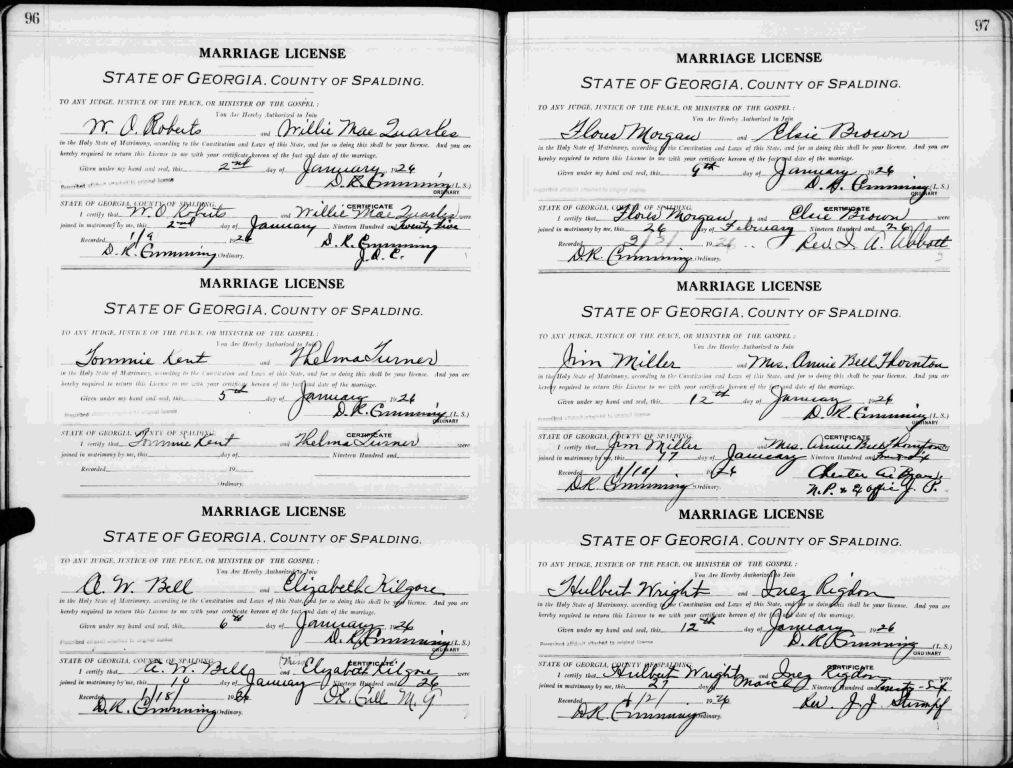 96
MARRIAGE LICENSE
STATE OF GEORGIA, COUNTY OF SPALDING.
TO ANY JUDGE, JUSTICE OF THE PEACE, OR MINISTER OF THE GOSPEL:
You Are Hereby Authorized to Join
W. O. Roberts and Willie Mae Quarles
in the Holy State of Matrimony, according to the Constitution and Laws of this State, and for so doing this shall be your license. And you are
hereby required to return this License to me with your certificate hereon of the fact and date of the marriage.
Given under my hand and seal, this 2nd day of January 1926
D. R. Cumming (L. S.)
ORDINARY
STATE OF GEORGIA, COUNTY OF SPALDING. CERTIFICATE
I certify that W. O Roberts and Willie Mae Quarles were
joined in matrimony by me, this 2nd day of January Nineteen Hundred and Twenty Five
Recorded 1/9 1926 D. R. Cumming
D. R. Cumming Ordinary.
MARRIAGE LICENSE
STATE OF GEORGIA, COUNTY OF SPALDING.
TO ANY JUDGE, JUSTICE OF THE PEACE, OR MINISTER OF THE GOSPEL:
You Are Hereby Authorized to Join
Tommie Kent and Thelma Turner
in the Holy State of Matrimony, according to the Constitution and Laws of this State, and for so doing this shall be your license. And you are
hereby required to return this License to me with your certificate hereon of the fact and date of the marriage.
Given under my hand and seal, this 5th day of January 1926
D. R. Cumming (L. S.)
ORDINARY
STATE OF GEORGIA, COUNTY OF SPALDING. CERTIFICATE
I certify that Tommie Kent and Thelma Turner were
joined in matrimony by me, this day of Nineteen Hundred and
Recorded 19
Ordinary.
MARRIAGE LICENSE
STATE OF GEORGIA, COUNTY OF SPALDING.
TO ANY JUDGE, JUSTICE OF THE PEACE, OR MINISTER OF THE GOSPEL:
You Are Hereby Authorized to Join
A. W. Bell and Elizabeth Kilgore
in the Holy State of Matrimony, according to the Constitution and Laws of this State, and for so doing this shall be your license. And you are
hereby required to return this License to me with your certificate hereon of the fact and date of the marriage.
Given under my hand and seal, this 6th day of January 1926
D. R. Cumming (L. S.)
ORDINARY
STATE OF GEORGIA, COUNTY OF SPALDING. CERTIFICATE
I certify that A. W. Bell and Elizabeth Kilgore were
joined in matrimony by me, this day of January Nineteen Hundred and 26
Recorded 1/18/ 1926 Gill M. G
D. R. Cumming Ordinary.
97
MARRIAGE LICENSE
STATE OF GEORGIA, COUNTY OF SPALDING.
TO ANY JUDGE, JUSTICE OF THE PEACE, OR MINISTER OF THE GOSPEL:
You Are Hereby Authorized to Join
Flous Morgan and Elsie Brown
in the Holy State of Matrimony, according to the Constitution and Laws of this State, and for so doing this shall be your license. And you are
hereby required to return this License to me with your certificate hereon of the fact and date of the marriage.
Given under my hand and seal, this 9th day of January 1926
D. R. Cumming (L. S.)
ORDINARY
STATE OF GEORGIA, COUNTY OF SPALDING. CERTIFICATE
I certify that Flous Morgan and Elsie Brown were
joined in matrimony by me, this 26 day of February Nineteen Hundred and 26
Recorded 1926 Rev. I. A. Abbott
D. R. Cumming Ordinary.
MARRIAGE LICENSE
STATE OF GEORGIA, COUNTY OF SPALDING.
TO ANY JUDGE, JUSTICE OF THE PEACE, OR MINISTER OF THE GOSPEL:
You Are Hereby Authorized to Join
Jim Miller and Mrs. Annie Bell Thornton
in the Holy State of Matrimony, according to the Constitution and Laws of this State, and for so doing this shall be your license. And you are
hereby required to return this License to me with your certificate hereon of the fact and date of the marriage.
Given under my hand and seal, this 12th day of January 1926
D. R. Cumming (L. S.)
ORDINARY
STATE OF GEORGIA, COUNTY OF SPALDING. CERTIFICATE
I certify that Jim Miller and Mrs. Annie Bell Thornton were
joined in matrimony by me, this 17 day of January Nineteen Hundred and
Recorded 1/18/ 1926 Chester A.
D. R. Cumming Ordinary. N. P. & Ex Offic J. P.
MARRIAGE LICENSE
STATE OF GEORGIA, COUNTY OF SPALDING.
TO ANY JUDGE, JUSTICE OF THE PEACE, OR MINISTER OF THE GOSPEL:
You Are Hereby Authorized to Join
Hulbert Wright and Inez Rigdon
in the Holy State of Matrimony, according to the Constitution and Laws of this State, and for so doing this shall be your license. And you are
hereby required to return this License to me with your certificate hereon of the fact and date of the marriage.
Given under my hand and seal, this 12th day of January 1926
D. R. Cumming (L. S.)
ORDINARY
STATE OF GEORGIA, COUNTY OF SPALDING. CERTIFICATE
I certify that Hulbert Wright and Inez Rigdon were
joined in matrimony by me, this 27 day of March Nineteen Hundred and Twenty-Six
Recorded 1926 Rev. J. J. Stumpf
D. R. Cumming Ordinary.